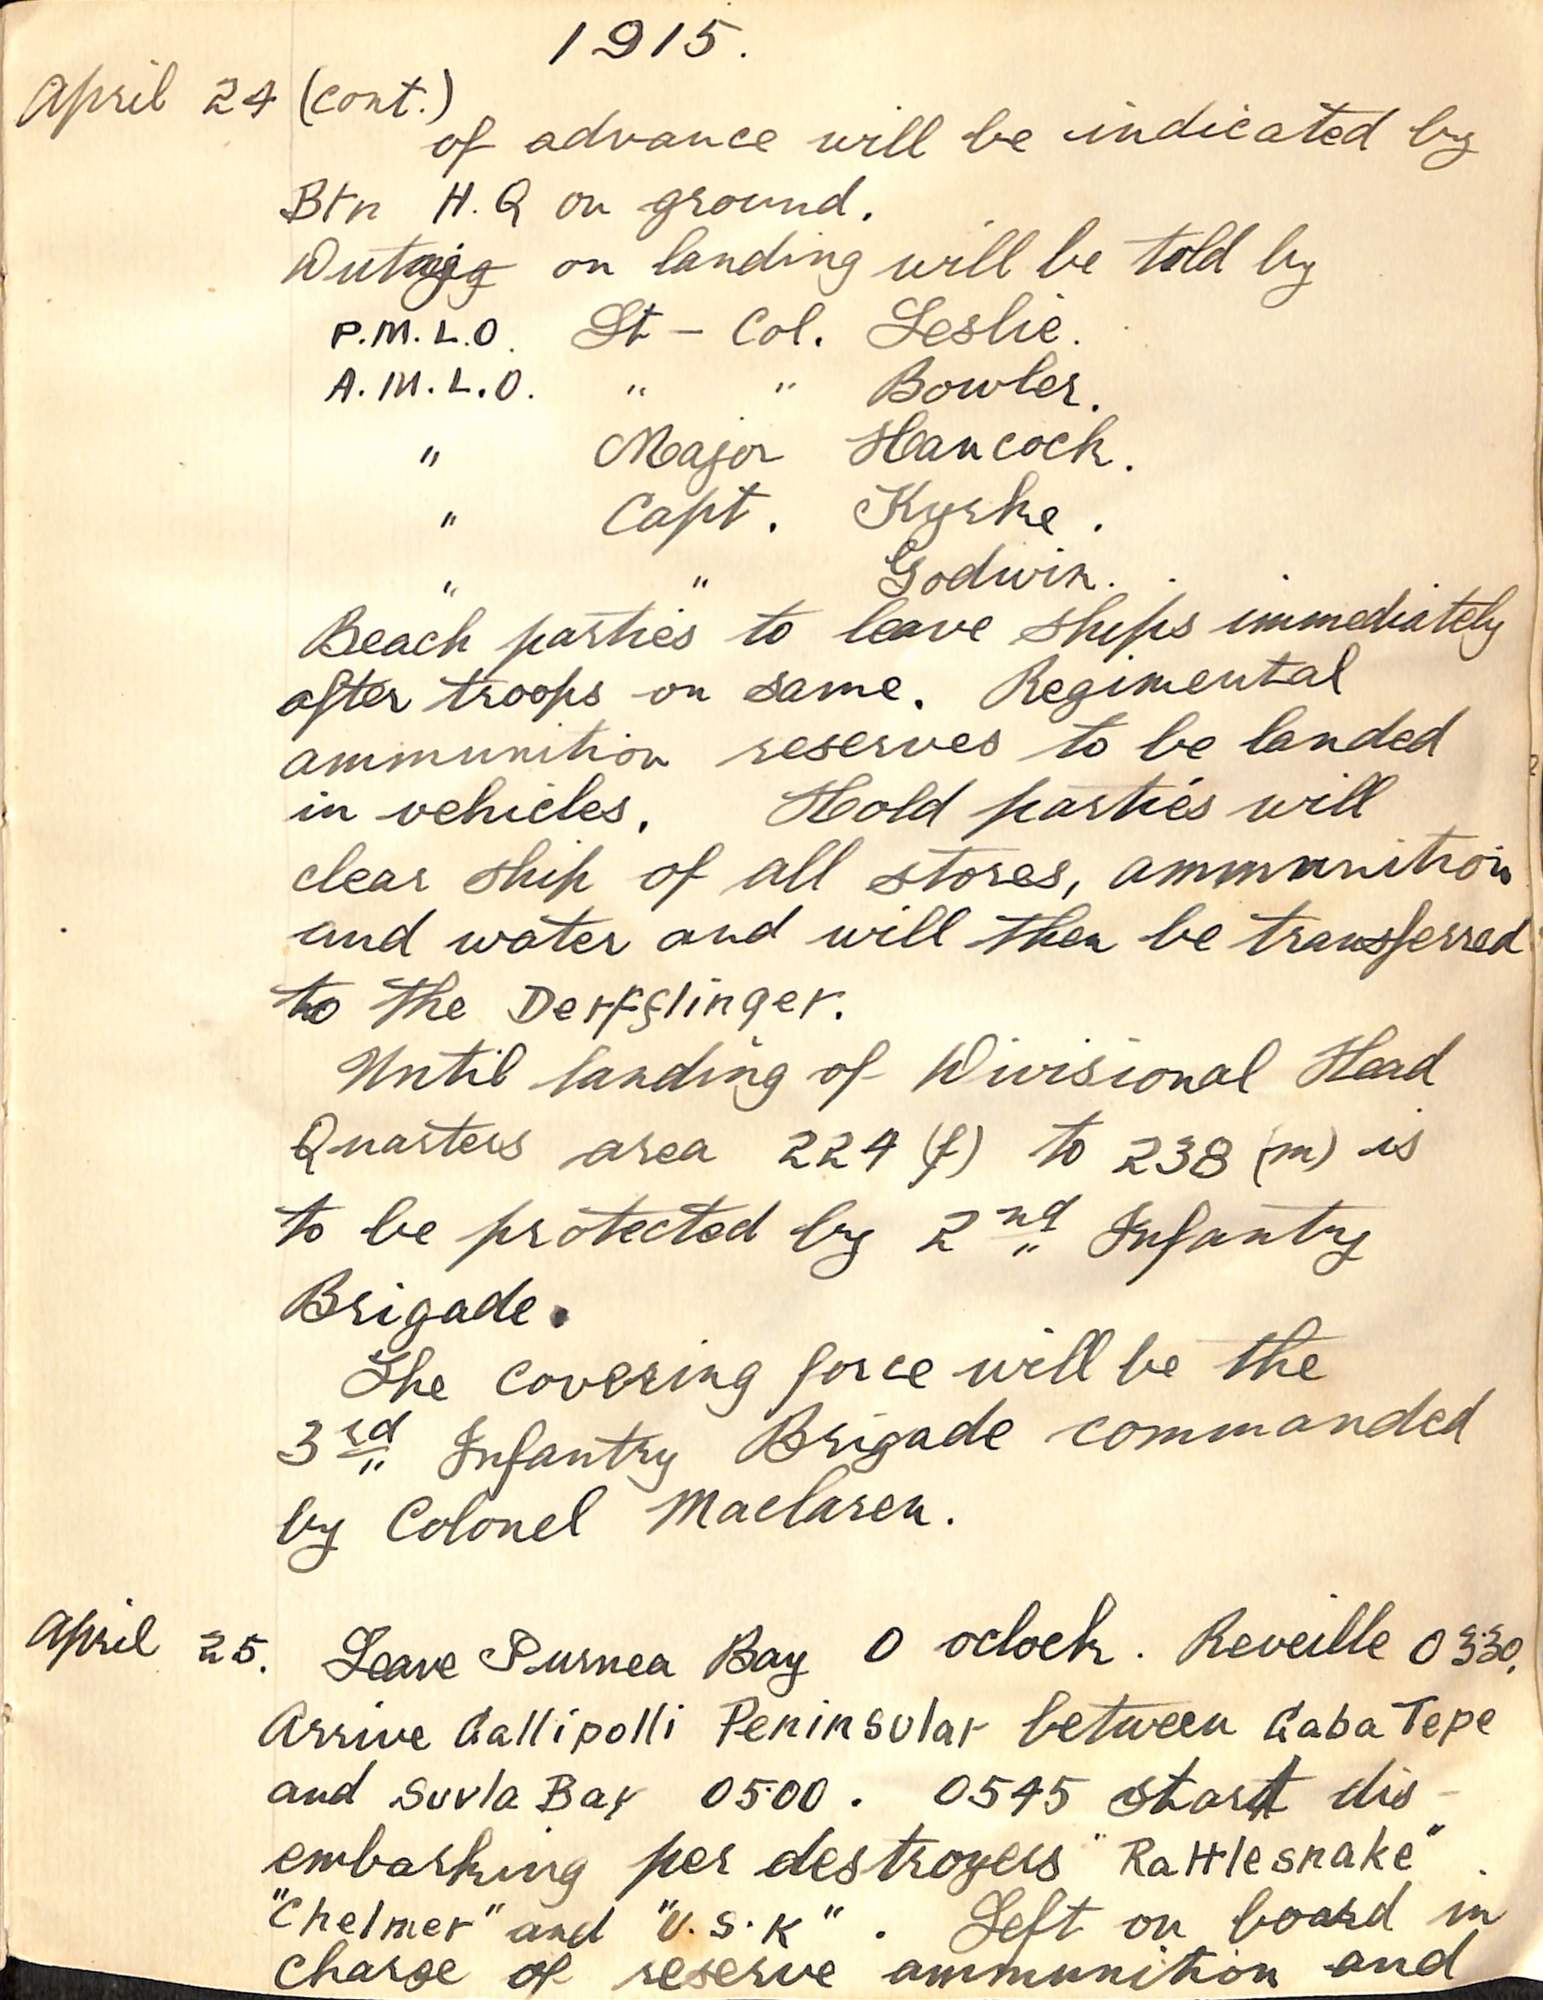 1915.
April 24 (cont.)
of advance will be indicated by
Btn H.Q on ground.
on landing will be told by
P.M.L.O. Lt - Col. Leslie.
A.M.L.O. " " Bowler.
" Major Hancock.
" Capt. Kyrke.
" " Godwin.
Beach parties to leave ships immediately
after troops on same. Regimental
ammunition reserves to be landed
in vehicles. Hold parties will
clear ship of all stores, ammunition
and water and will then be transferred
to the Derfflinger.
Until landing of Divisional Head
Quarters area 224 (f) to 238 (m) is
to be protected by 2nd Infantry
Brigade.
The covering force will be the
3rd Infantry Brigade commanded
by Colonel Maclaren.
April 25. Leave Purnea Bay 0 oclock. Reveille 0330.
Arrive Gallipolli Peninsular between Gaba Tepe
and Suvla Bay 0500. 0545 start dis-
embarking per destroyers "Rattlesnake".
"Chelmer" and "U.S.K". Left on board in
charge of reserve ammunition and